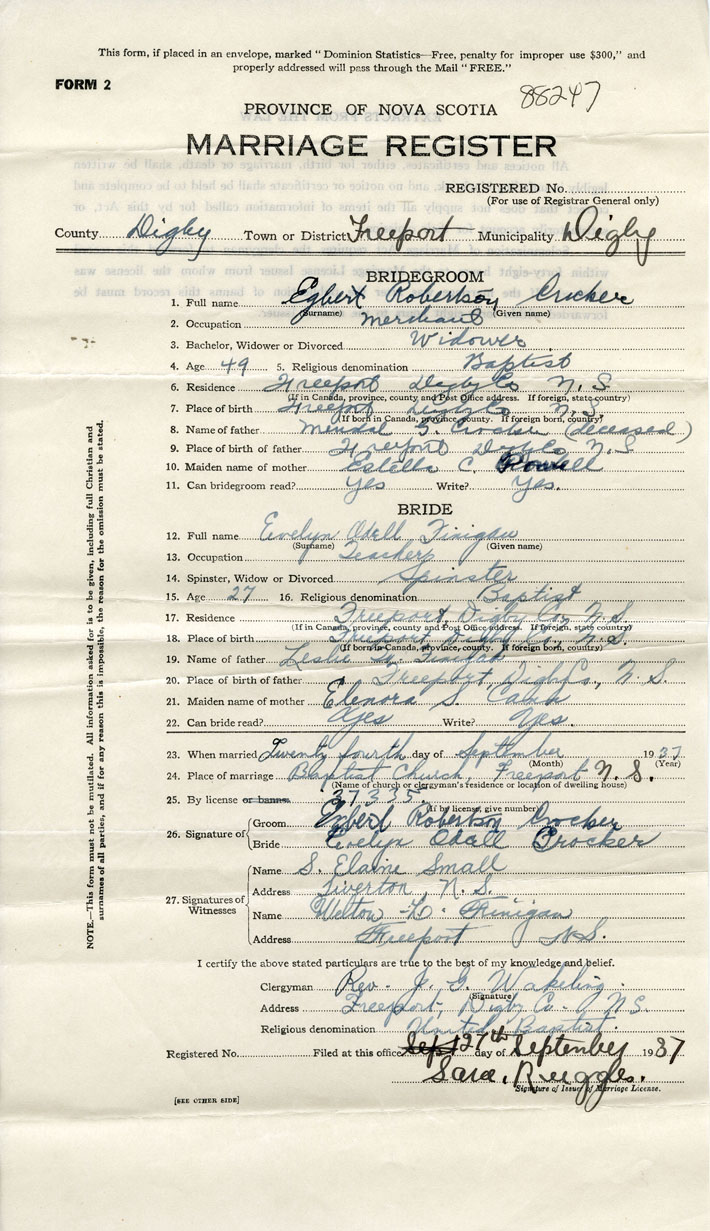 This form, if placed in an envelope, marked "Dominion Statistics—Free, penalty for improper use $300," and
properly addressed will pass through the Mail "FREE."
FORM 2
88247
PROVINCE OF NOVA SCOTIA
MARRIAGE REGISTER
REGISTERED No.
(For use of Registrar General only)
County Digby Town or District Freeport Municipality Digby
BRIDEGROOM
1. Full name Egbert Robertson Crocker
(Surname) (Given name)
2. Occupation merchant
3. Bachelor, Widower or Divorced Widower
4. Age 49 5. Religious denomination Baptist
6. Residence Freeport Digby Co N. S
(If in Canada, province, county and Post Office address. If foreign, state country)
7. Place of birth Freeport Digby Co N. S.
(If born in Canada, province, county. If foreign born, country)
8. Name of father Crocker (deceased)
9. Place of birth of father Freeport Digby Co N. S
10. Maiden name of mother Estella C. Powell
11. Can bridegroom read? Yes Write? Yes.
BRIDE
12. Full name Evelyn Odell Finigan
(Surname) (Given name)
13. Occupation Teacher
14. Spinster, Widow or Divorced Spinster
15. Age 27 16. Religious denomination Baptist
17. Residence Freeport, Digby Co, N. S.
(If in Canada, province, county and Post Office address. If foreign, state country)
18. Place of birth Freeport Digby Co., N. S.
(If born in Canada, province, county. If foreign born, country)
19. Name of father Leslie Finigan
20. Place of birth of father Freeport, Digby Co., N. S.
21. Maiden name of mother Elenora S. Cann
22. Can bride read? Yes Write? Yes.
23. When married Twenty fourth day of September 1937
(Month) (Year)
24. Place of marriage Baptist Church, Freeport N. S.
(Name of church or clergyman's residence or location of dwelling house)
25. By license or banns 37335
(If by license, give number)
26. Signature of Groom Egbert Robertson Crocker
Bride Evelyn Odell Crocker
27. Signatures of Witnesses
Name S. Elaine Small
Address Tiverton, N. S.
Name Welton H. Finigan
Address Freeport N.S.
I certify the above stated particulars are true to the best of my knowledge and belief.
Clergyman Rev. J. G. Wakeling
(Signature)
Address Freeport, Digby Co. N. S.
Religious denomination United Baptist.
Registered No. Filed at this office 27th day of September 1937
Sara. Ruggles.
Signature of Issuer of Marriage License.
[SEE OTHER SIDE]
NOTE.—This form must not be mutilated. All information asked for is to be given, including full Christian and
surnames of all parties, and if for any reason this is impossible, the reason for the omission must be stated.